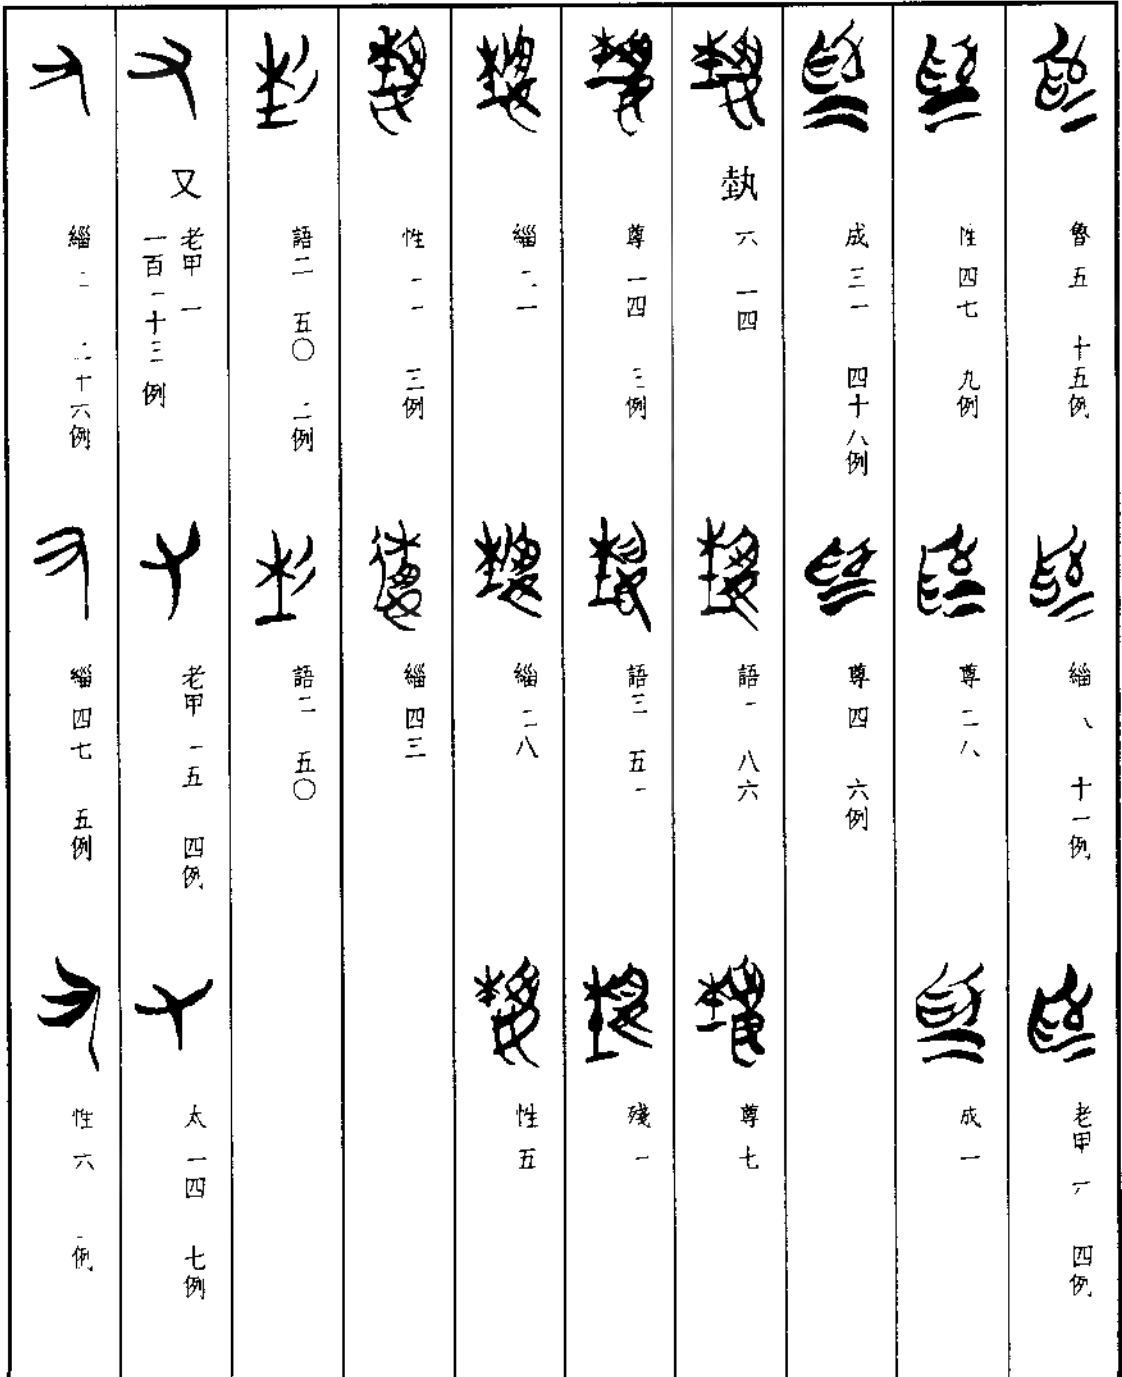 魯 五 十五例
緇 八 十一例
老甲 六 四例
性 四七 九例
尊 二八
成 一
成 三一 四十八例
尊 四 六例
埶
六 一四
語一 八六
尊 七
尊 一四 三例
語三 五一
殘 一
緇 二一
緇 二八
性 五
性 一一 三例
緇 四三
語二 五〇 二例
語二 五〇
又
老甲 一
一百一十三例
老甲 一五 四例
太 一四 七例
緇 二十六例
緇 四七 五例
性 六 例